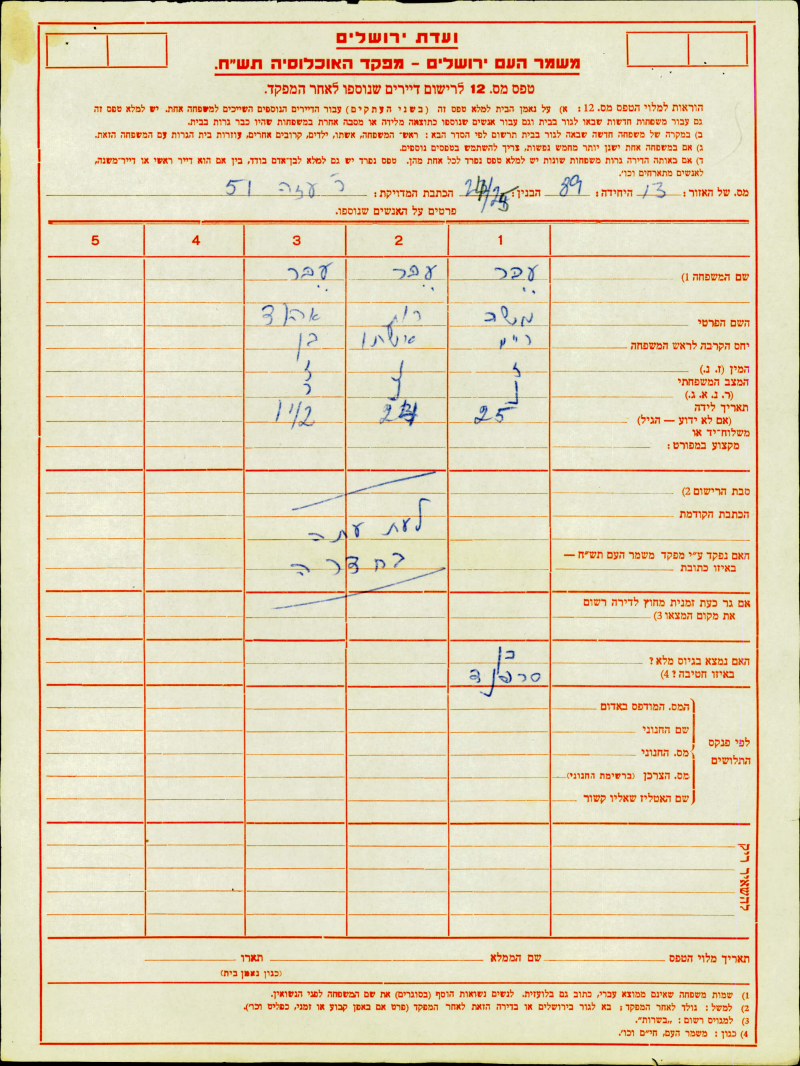 ועדת ירושלים
משמר העם ירושלים – מפקד האוכלוסיה תש"ח.
טפס מס. 12 לרישום דיירים שנוספו לאחר המפקד.
הוראות למלוי הטפס מס. 12: א) על נאמן הבית למלא טפס זה (בשני העתקים) עבור הדיירים הנוספים השייכים למשפחה אחת. יש למלא טפס זה
גם עבור משפחות חדשות שבאו לגור בבית וגם עבור אנשים שנוספו כתוצאה מלידה או מסבה אחרת במשפחות שהיו כבר גרות בבית.
ב) במקרה של משפחה חדשה שבאה לגור בבית תרשום לפי הסדר הבא: ראש המשפחה, אשתו, ילדים, קרובים אחרים, עוזרות בית הגרות עם המשפחה הזאת.
ג) אם במשפחה אחת ישנן יותר מחמש נפשות, צריך להשתמש בטפסים נוספים.
ד) אם באותה הדירה גרות משפחות שונות יש למלא טפס נפרד לכל אחת מהן. טפס נפרד יש גם למלא לבן־אדם בודד, בין אם הוא דייר ראשי או דייר־משנה,
לאנשים מתארחים וכו'.
מס. של האזור: 13 היחידה: 89 הבנין: הכתבת המדויקת: ר' עזה 51
פרטים על האנשים שנוספו.
1 2 3 4 5
שם המשפחה (1 עבר עבר עבר
השם הפרטי משה רות אהוד
יחס הקרבה לראש המשפחה אשתו בן
המין (ז. נ.) ז נ ז
המצב המשפחתי
(ר. נ. א. ג.) נ נ ר
תאריך לידה
(אם לא ידוע — הגיל) 25 1 1/2
משלוח־יד או
מקצוע במפורט:
סבת הרישום (2
הכתבת הקודמת
לעת עתה
האם נפקד ע"י מפקד משמר העם תש"ח —
באיזו כתובת
בחדרה
אם גר כעת זמנית מחוץ לדירה רשום
את מקום המצאו (3
האם נמצא בגיוס מלא? כן
באיזו חטיבה? (4 סרפנד
לפי פנקס
התלושים
המס. המודפס באדום
שם החנוני
מס. החנוני
מס. הצרכן (ברשימת החנוני)
שם האטליז שאליו קשור
להשאיר ריק
תאריך מלוי הטפס שם הממלא תארו
(כגון נאמן בית)
1) שמות משפחה שאינם ממוצא עברי, כתוב גם בלועזית. לנשים נשואות הוסף (בסוגרים) את שם המשפחה לפני הנשואין.
2) למשל: נולד לאחר המפקד; בא לגור בירושלים או בדירה הזאת לאחר המפקד (פרט אם באפן קבוע או זמני, כפליט וכו').
3) למגויס רשום: „בשרות".
4) כגון: משמר העם, חי"ם וכו'.